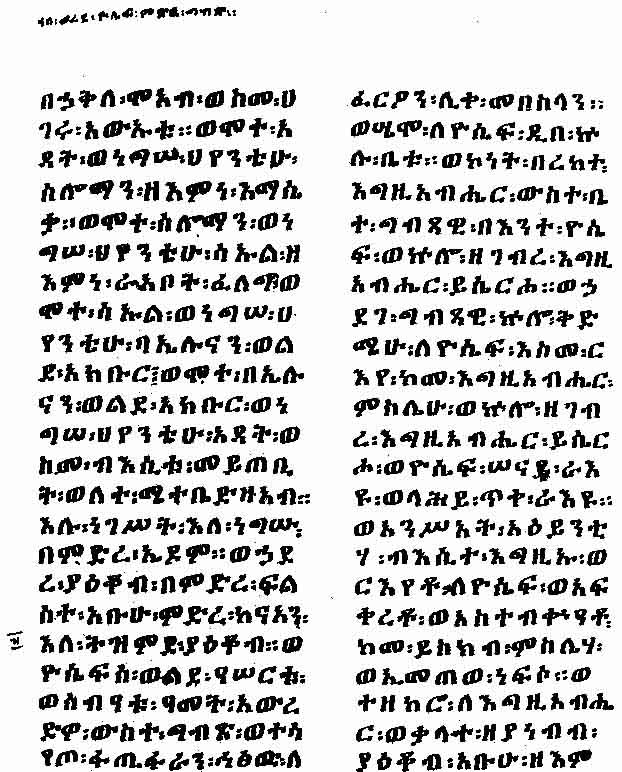 ወረደ፡ዮሴፍ፡ምድረ፡ግብጽ።
በኃቅለ፡ሞአብ፡ወስመ፡ሀ
ገሩ፡አውኡቱ።ወሞተ፡አ
ዳት፡ወነግሡ፡ህየንቴሁ፡
ስሎማን፡ዘእምነ፡እማሴ
ቃ።ወሞተ፡ስሎማን፡ወነ
ግሠ፡ህየንቴሁ፡ሳኡል፡ዘ
እምነ፡ራአቦት፡ፈለግ፡ወ
ሞተ፡ሳኡል፡ወነግሠ፡ህ
የንቴሁ፡ባኤሉናን፡ወል
ደ፡አክቡር፤ወሞተ፡በኤሉ
ናን፡ወልደ፡አክቡር፡ወነ
ግሠ፡ህየንቴሁ፡አዳት፡ወ
ስመ፡ብእሲቱ፡መይጠቢ
ት፡ወለተ፡ሜተቤድዘአብ።
እሉ፡ነገሥት፡እለ፡ነግሡ፡
በምድረ፡ኤዶም።ወኃደ
ረ፡ያዕቆብ፡በምድረ፡ፍል
ስተ፡አቡሁ፡ምድረ፡ከናአን፡
እለ፡ትዝምድ፡ያዕቆብ።ወ
ዮሴፍሰ፡ወልደ፡ዓሠርቱ፡
ወሰብዓቱ፡ዓመት፡አውረ
ድዎ፡ውስተ፡ግብጽ፡ወተሳ
የጦ፡ፋጢፋራን፡ኅፅው፡ለ
ፈርዖን፡ሊተ፡መበስላን።
ወሤሞ፡ለዮሴፍ፡ዲበ፡ኵ
ሉ፡ቤቱ።ወኮነት፡በረከተ፡
እግዚአብሔር፡ውስተ፡ቤ
ተ፡ግብጻዊ፡በእንተ፡ዮሴ
ፍ፡ወኵሎ፡ዘገብረ፡እግዚ
አብሔር፡ይሴርሖ።ወኃ
ደገ፡ግብጻዊ፡ኵሎ፡ቅድ
ሜሁ፡ለዮሴፍ፡እስመ፡ር
እየ፡ከመ፡እግዚአብሔር፡
ምስሌሁ፡ወኵሎ፡ዘገብ
ረ፡እግዚአብሔር፡ይሴር
ሖ፡ወዮሴፍ፡ሠናይ፡ራእ
ዩ፡ወላሕይ፡ጥቀ፡ራእዩ።
ወአንሥአት፡አዕይንቲ
ሃ፡ብእሲተ፡እግዚኡ፡ወ
ርእየቶ፡ለዮሴፍ፡ወአፍ
ቀረቶ፡ወአስተብቍዓቶ፡
ከመ፡ይስክብ፡ምስሌሃ፡
ወኢመጠወ፡ነፍሶ።ወ
ተዘከሮ፡ለእግዚአብሔ
ር፡ወቃላተ፡ዘያነብብ፡
ያዕቆብ፡አቡሁ፡ዘእም